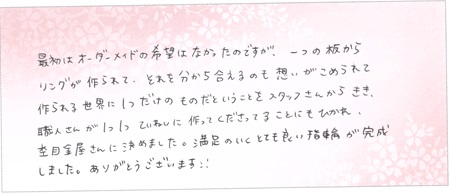 最初はオーダーメイドの希望はなかったのですが、一つの板から
リングが作られて、それを分かち合えるのも想いがこめられて
作られる世界に1つだけのものだということをスタッフさんからきき、
職人さんが1つ1つていねいに作ってくださってることにもひかれ、
杢目金屋さんに決めました。満足のいくとても良い指輪が完成
しました。ありがとうございます!!